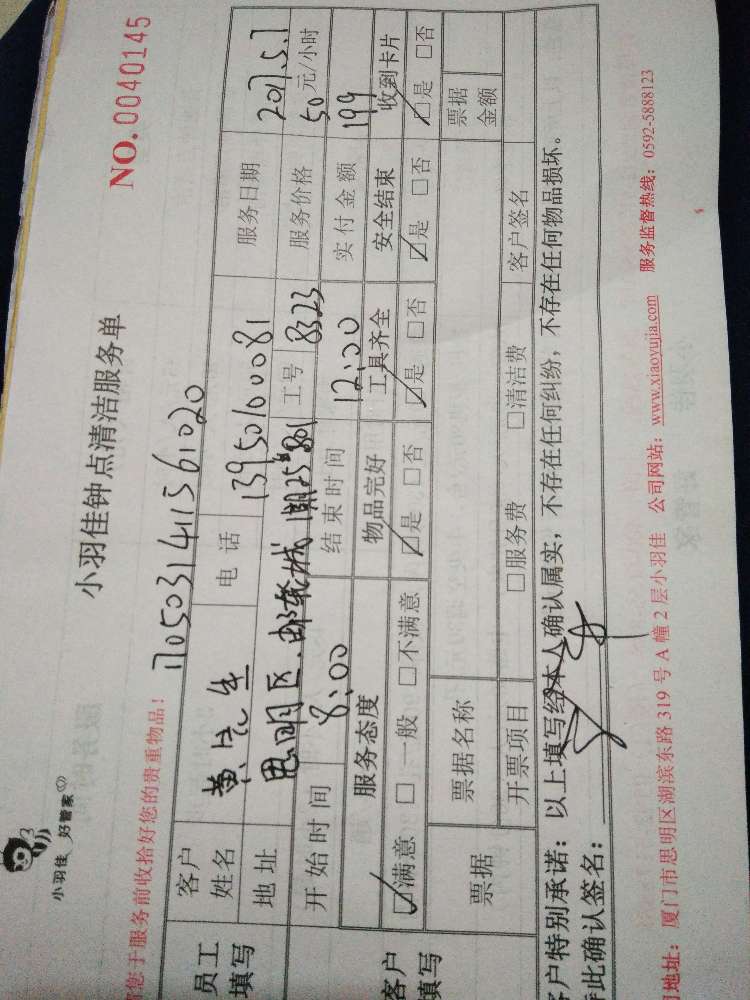 小羽佳 好管家
小羽佳钟点清洁服务单
NO.0040145
您于服务前收拾好您的贵重物品!
1705031411561020
员工填写
客户姓名 黄先生 电话 13950100081 服务日期 2017.5.7
地址 思明区.邮轮城1期25#801 工号 8323 服务价格 50元/小时
开始时间 8:00 结束时间 12:00 实付金额 199
客户填写
服务态度 物品完好 工具齐全 安全结束 收到卡片
☑满意 □一般 □不满意 ☑是 □否 ☑是 □否 ☑是 □否 ☑是 □否
票据 票据名称 票据金额
开票项目 □服务费 □清洁费 客户签名
户特别承诺:以上填写经本人确认属实,不存在任何纠纷,不存在任何物品损坏。
此确认签名:
地址:厦门市思明区湖滨东路319号A幢2层小羽佳 公司网站:www.xiaoyujia.com 服务监督热线:0592-5888123